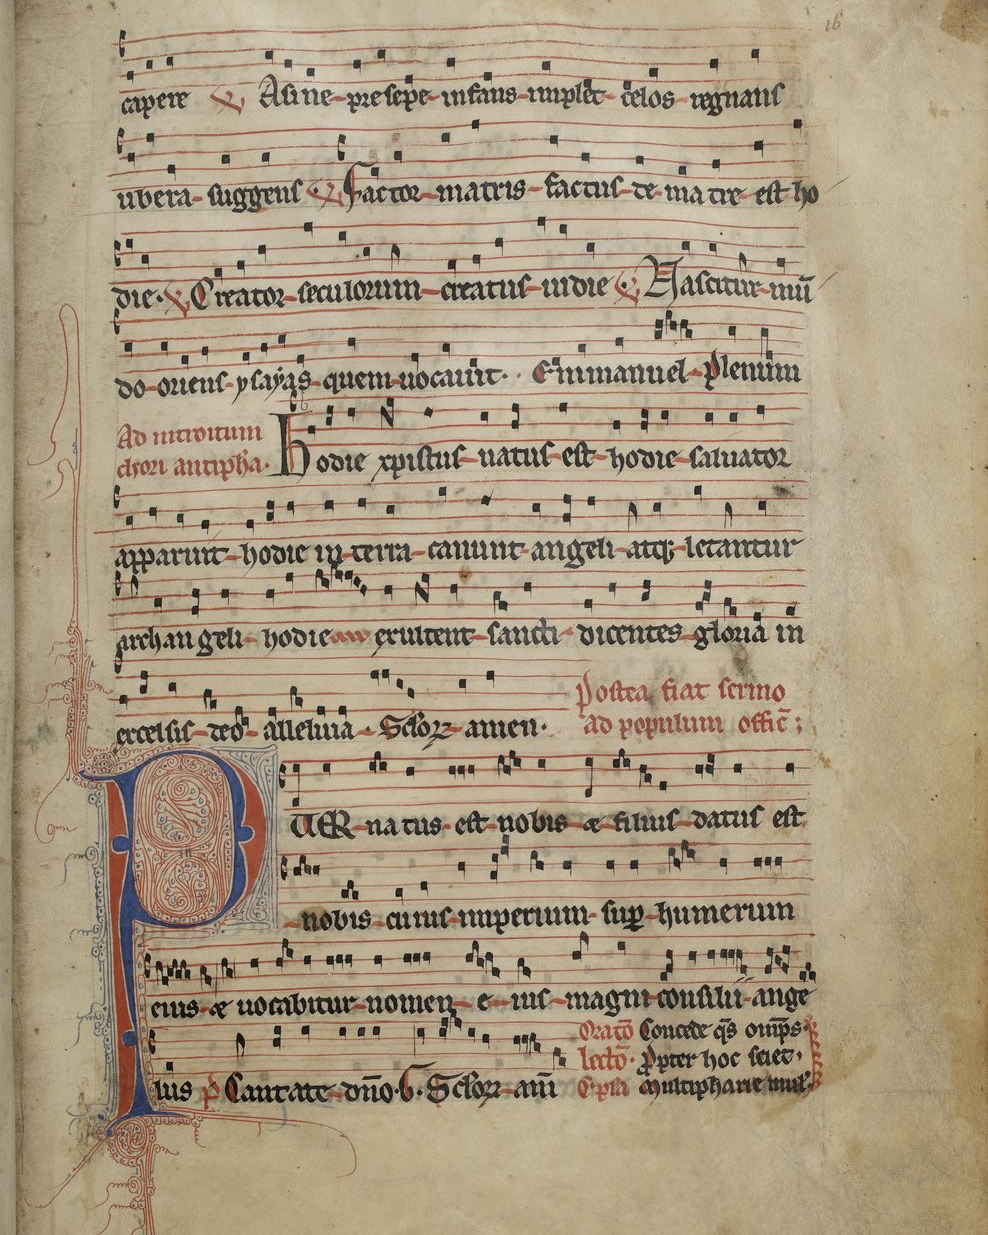 16
capere ℣ Asine presepe infans implet celos regnans
ubera suggens ℣ Factor matris factus de matre est ho
die · ℣ Creator seculorum creatus in die ℣ Nascitur mū
do oriens ysayas quem uocauit · Emmanuel Plenum
Ad introitum
chori antipha · Hodie xpistus natus est hodie saluator
apparuit hodie in terra canunt angeli atqꝫ letantur
archangeli hodie exultent sancti dicentes gloria in
excelsis deo alleluia · Sclorꝝ amen ·
Postea fiat sermo
ad populum offic̄ ;
PUER natus est nobis ⁊ filius datus est
nobis cuius imperium sup̱ humerum
eius ⁊ uocabitur nomen eius magni consilii ange
lus p̄ Cantate dn̄o · Sclorꝝ am̄
Oratō Concede qs̄ omps̄
lectō · Ppter hoc sciet ·
Epla Multipharie mul